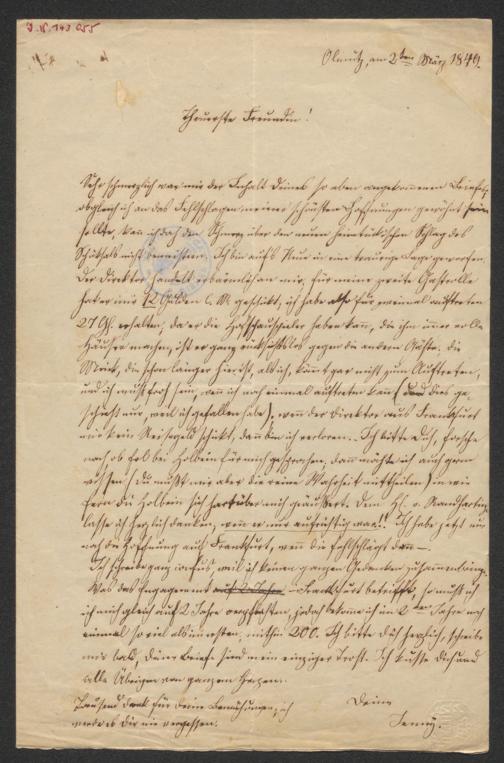 J. N. 143 055
Olmütz, am 2ten März 1849.
Theuerste Freundin!
Sehr schmerzlich war mir der Inhalt Deines so eben angekommenen Briefes,
obgleich ich an das Fehlschlagen meiner schönsten Hoffnungen gewöhnt sein
sollte, kann ich doch den Schmerz über den neuen heimtükischen Schlag des
Schiksals nicht bemeistern. Ich bin aufs Neue in eine traurige Lage geworfen.
Der Direktor handelt erbärmlich an mir, für meine zweite Gastrolle
hat er mir 12 Gulden C. M. geschikt, ich habe also für zweimal auftreten
27 Gl. erhalten, da er die Hofschauspieler haben kann, die ihm immer volle
Häuser machen, ist er ganz rücksichtslos gegen die andern Gäste. Die
, die schon länger hier ist, als ich, kömmt gar nicht zum Auftreten,
und ich muß froh sein, wenn ich noch einmal auftreten kann (und dies ge-
schieht nur, weil ich gefallen habe), wenn der Direktor aus Frankfurt
mir kein Reisegeld schikt, dann bin ich verloren. Ich bitte Dich, forsche
nach ob bei Holbein für mich gesprochen, dann möchte ich auch gern
wissen (Du mußt mir aber die reine Wahrheit mittheilen) in wie
fern die Holbein sich über mich geäußert. Dem H. v.
lasse ich herzlich danken, wenn er nur aufrichtig war!! Ich habe jetzt nur
noch die Hoffnung auf Frankfurt, wenn die fehlschlägt dann —.
Ich schreibe ganz confus, weil ich keinen ganzen Gedanken zusammenbringe.
Was das Engagement auf 2 Jahre — Frankfurt betrifft, so muß ich
mich gleich auf 2 Jahre verpflichten, jedoch bekomme ich im 2ten Jahre noch
einmal so viel als im ersten, mithin 200. Ich bitte Dich herzlich, schreibe
mir bald, Deine Briefe sind mein einziger Trost. Ich küsse Dich und
alle Übrigen von ganzem Herzen.
Tausend Dank für Deine Bemühungen, ich
werde es Dir nie vergessen.
Deine
Jenny.